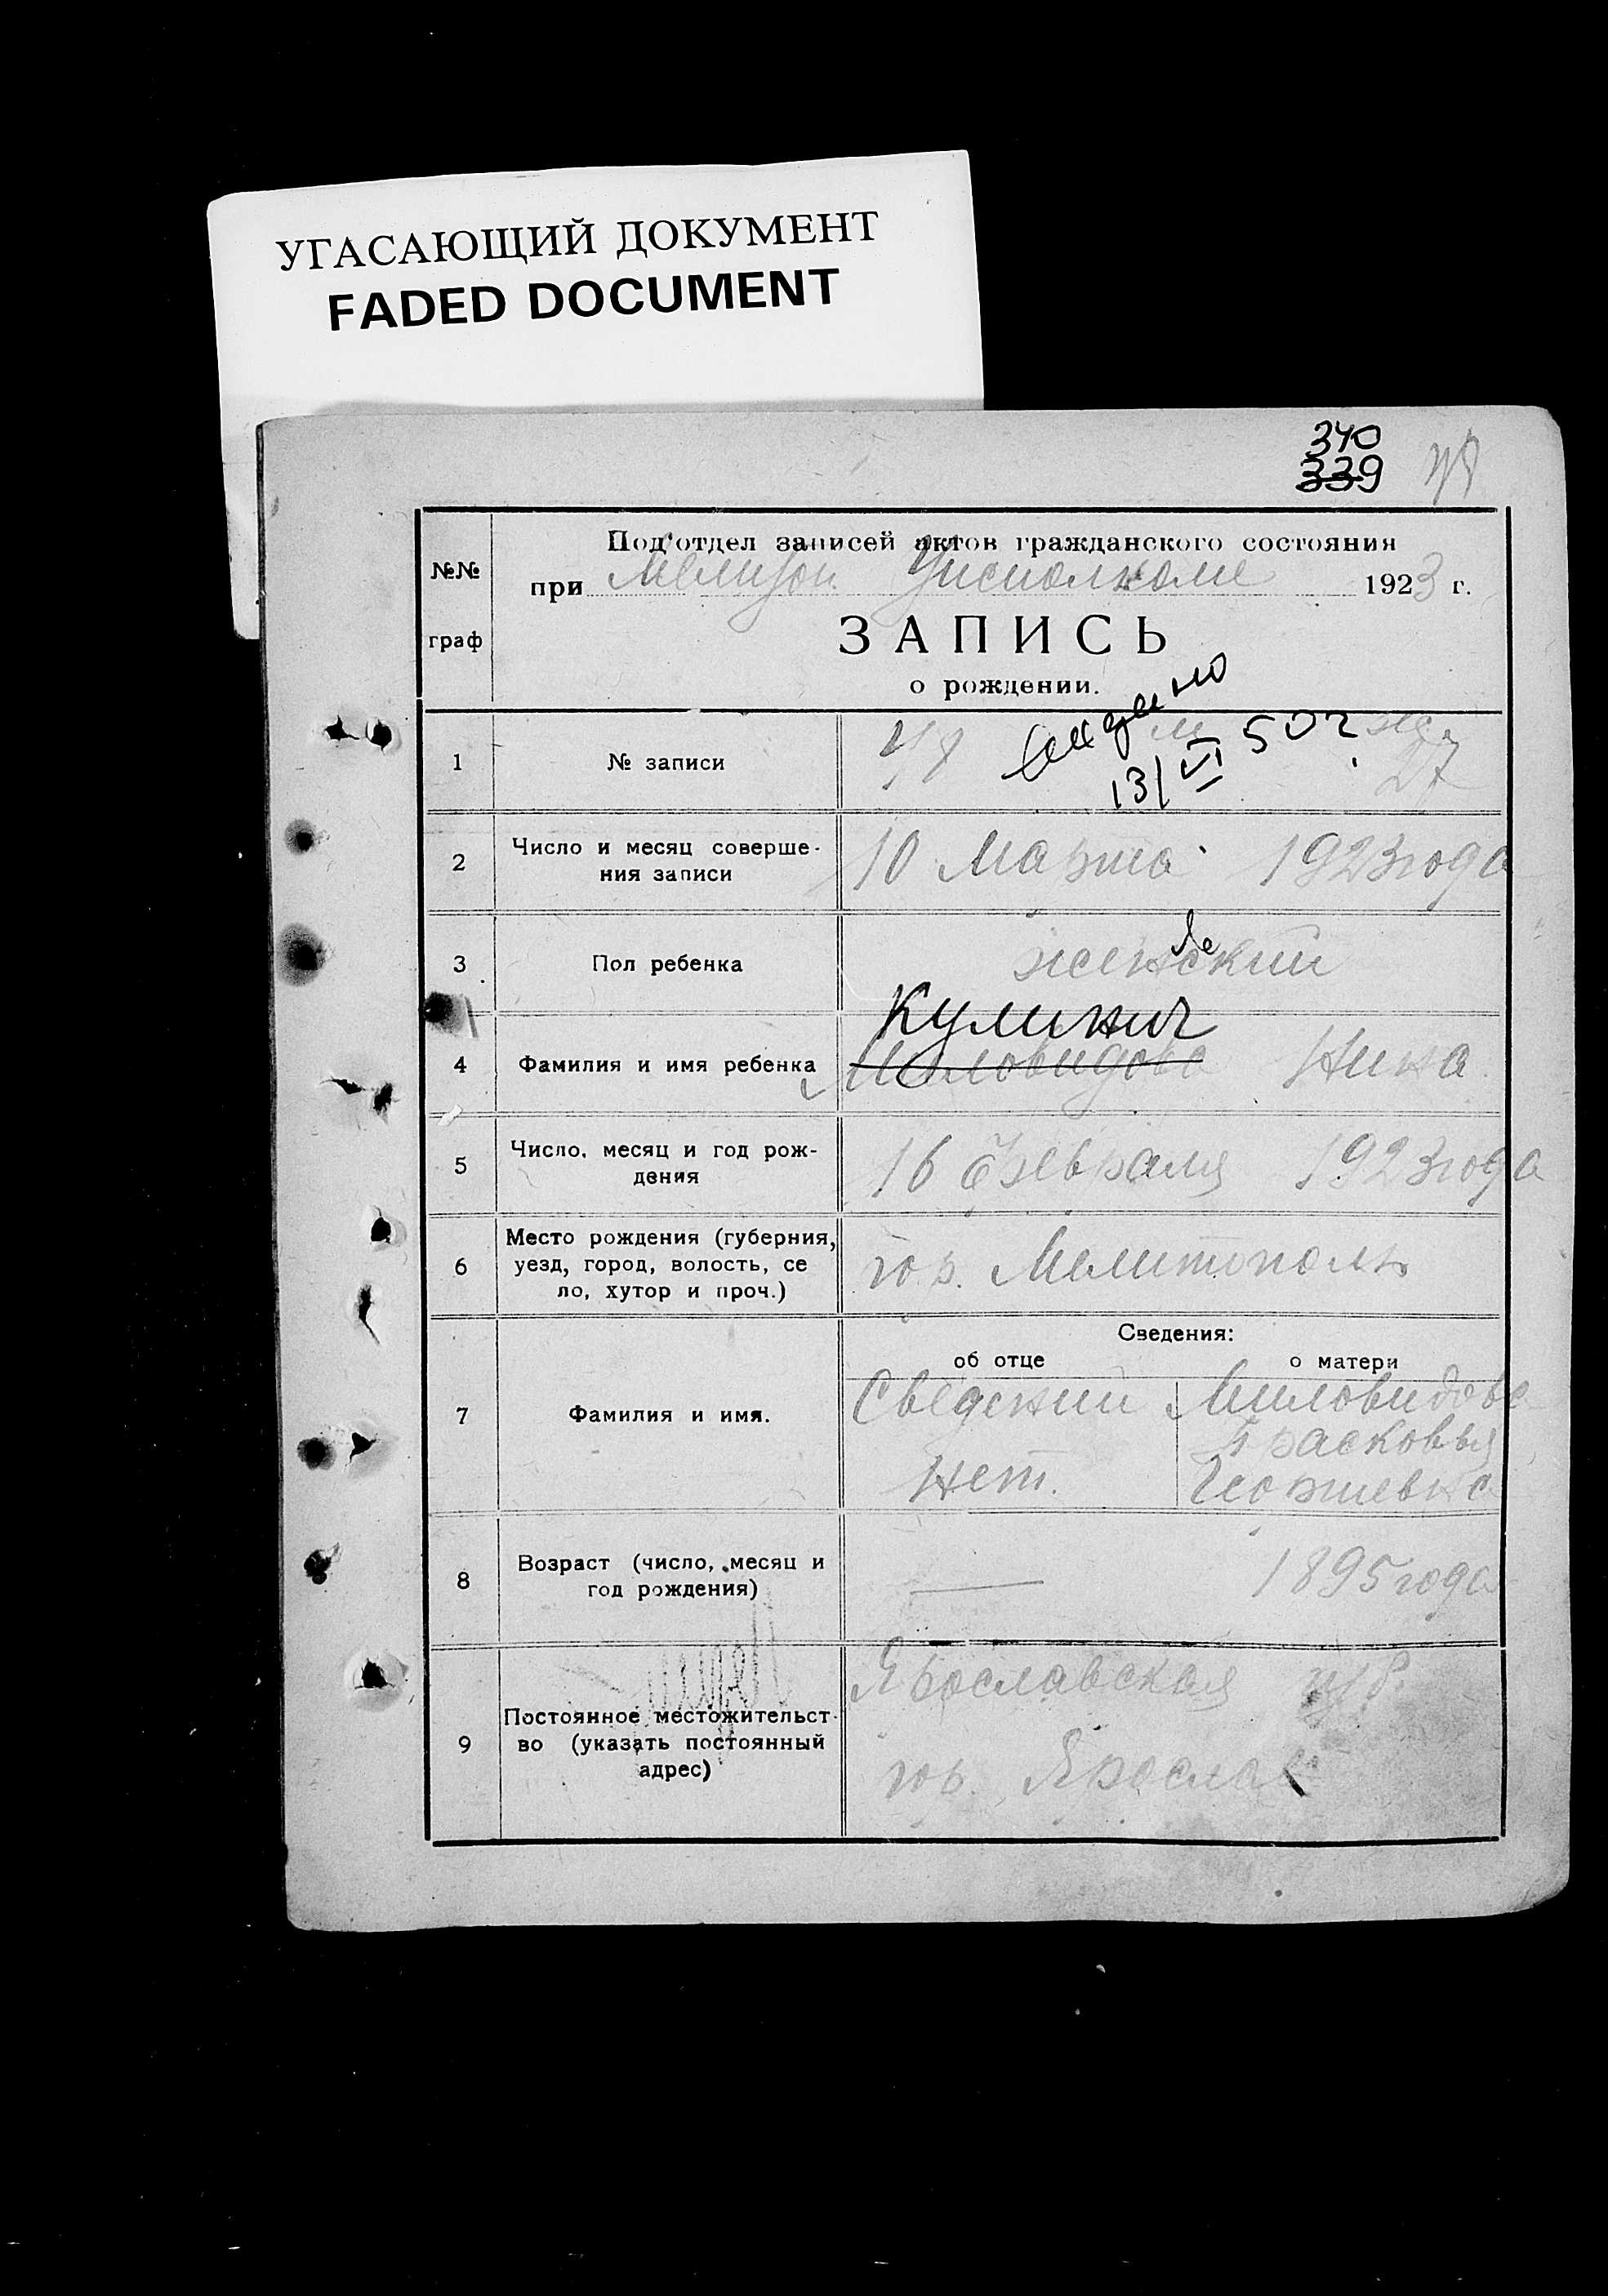 УГАСАЮЩИЙ ДОКУМЕНТ
FADED DOCUMENT
340
339
№№
граф
Под'отдел записей актов гражданского состояния
при Уисполкоме 1923 г.
ЗАПИСЬ
о рождении.
1 № записи
13/VI 50 г
27
2 Число и месяц соверше-
ния записи
10 Марта 1923 года
3 Пол ребенка
женский
4 Фамилия и имя ребенка
Кулинич
Миловидова Нина
5 Число, месяц и год рож-
дения
16 февраля 1923 года
6 Место рождения (губерния,
уезд, город, волость, се
ло, хутор и проч.)
гор. Мелитополь
Сведения:
об отце о матери
7 Фамилия и имя.
Сведений
Нет.
Миловидова
Прасковья
Георгиевна
8 Возраст (число, месяц и
год рождения)
— 1895 года
9 Постоянное местожительст-
во (указать постоянный
адрес)
Ярославская губ.
гор. Ярослав